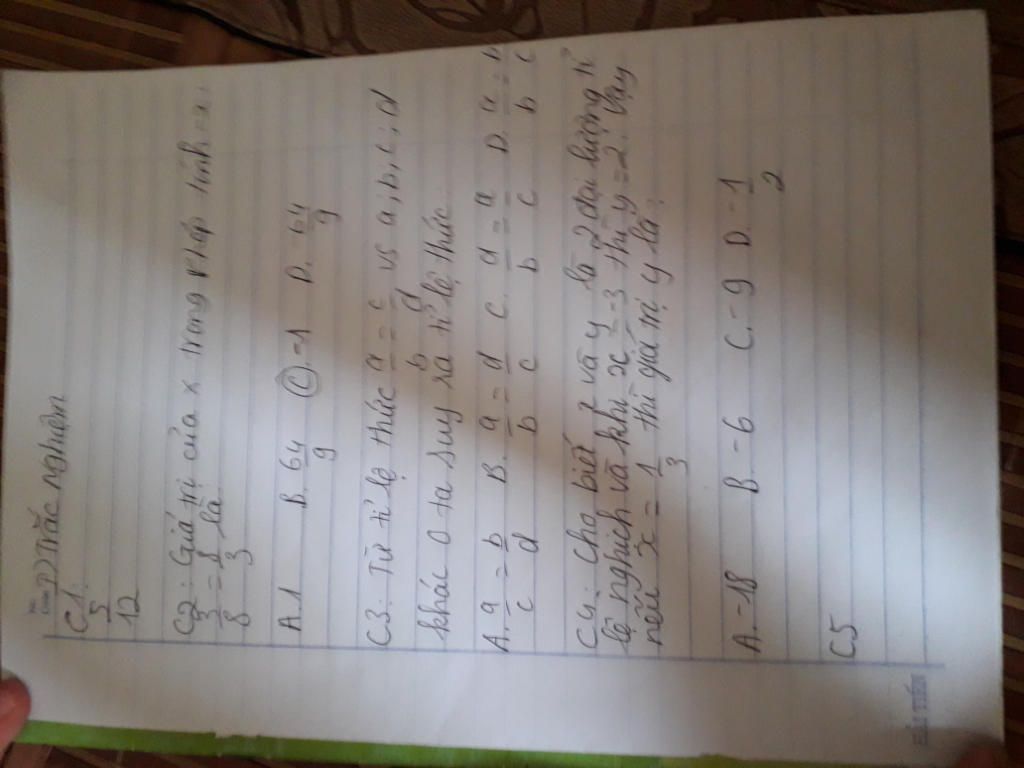 I) Trắc nghiệm
C1:
5
12
C2: Giá trị của x trong phép tính -x:
3/8 = 1/3 là
A. 1 B. 64/9 C. -1 D. -64/9
C3: Từ tỉ lệ thức a/b = c/d vs a, b, c, d
khác 0 ta suy ra tỉ lệ thức
A. a/c = b/d B. a/b = d/c C. d/b = a/c D. a/b = b/c
C4: Cho biết x và y là 2 đại lượng tỉ
lệ nghịch và khi x = -3 thì y = 2. Vậy
nếu x = 1/3 thì giá trị y là:
A. -18 B. -6 C. -9 D. -1/2
C5
HẢI TIẾN